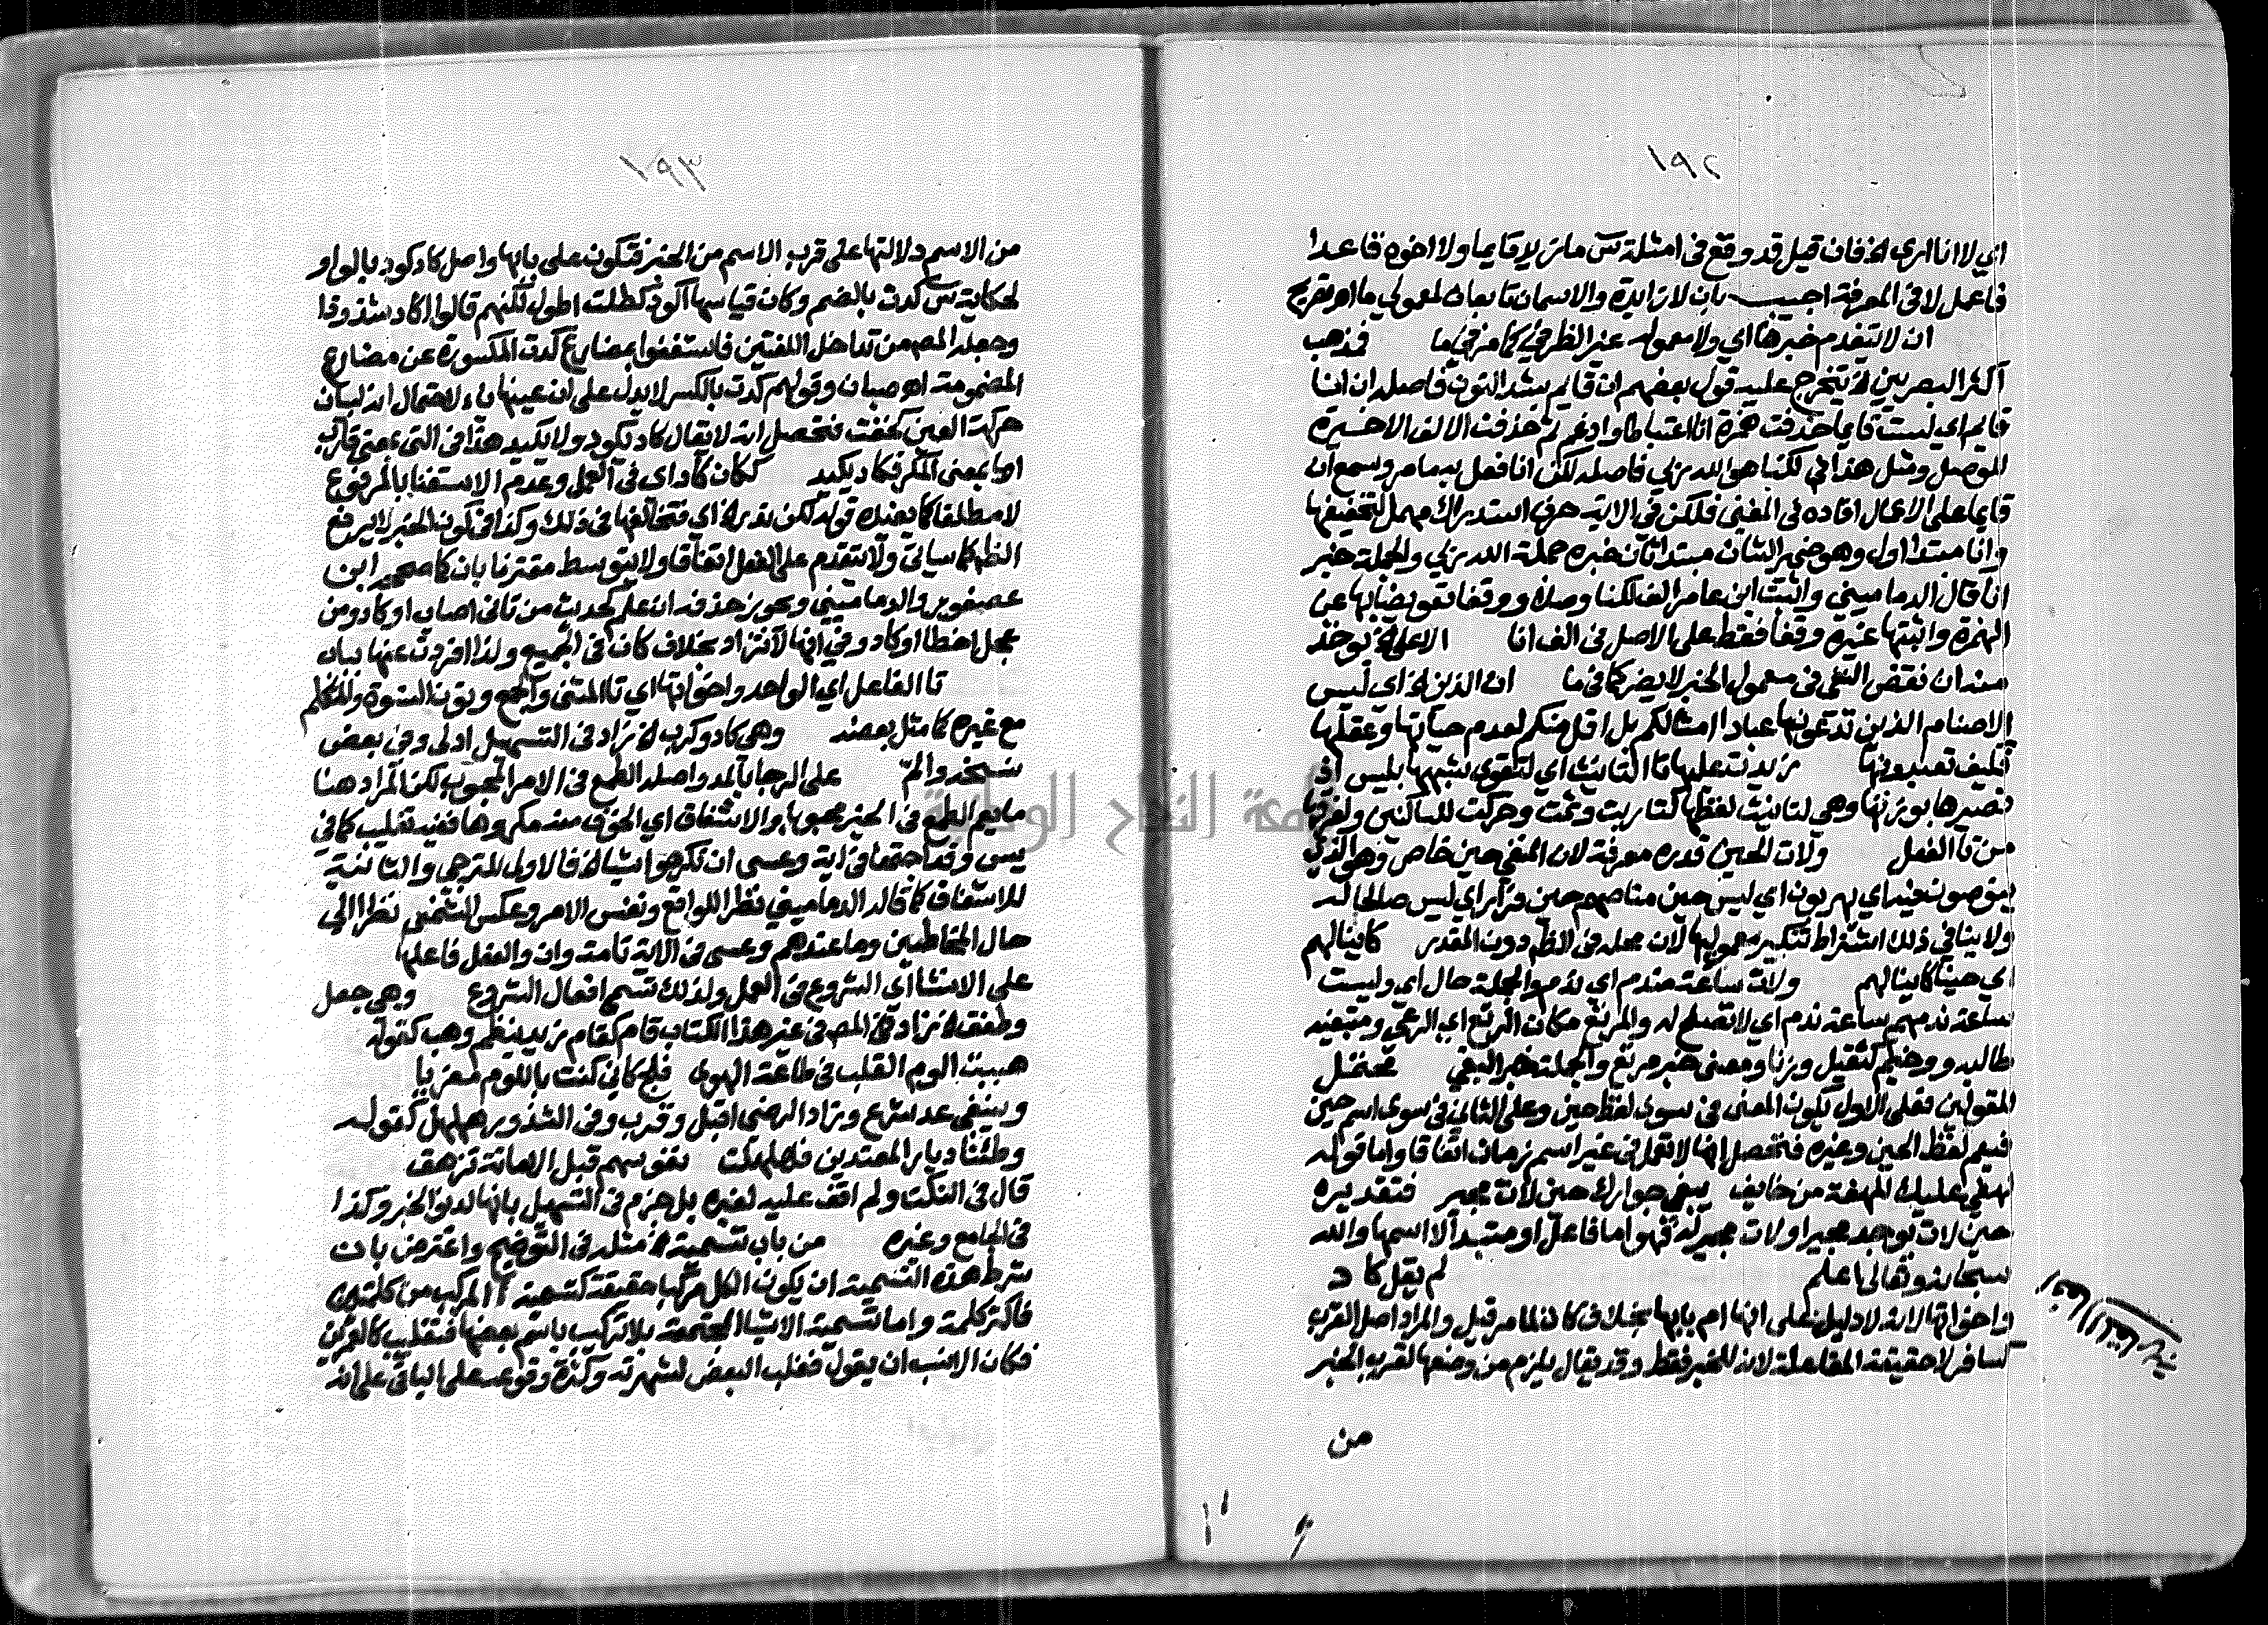 ١٩٢
اي لا انا اري الخ فان قيل قد وقع في امثلة س ما زيد قايما ولا اخوه قاعدا
فاعمل لا في المعرفة اجيب بان لا زايدة والاسمان تابعان لمعمولي ما اهـ تصريح
ان لا يتقدم خبرها اي ولا معموله غير الظرفي كما مر في ما فذهب
اكثر البصريين الخ يتخرج عليه قول بعضهم ان قايم بشد النون فاصله ان انا
قايم اي ليست قايما حذفت همزة انا اعتباطا وادغم ثم حذفت الالف الاخيرة
للوصل ومثل هذا في لكنا هو الله ربي فاصله لكن انا فعل به ما مر وسمع ان
قايما على الاعمال افاده في المغني فلكن في الاية حرف استدراك مهمل لتخفيفها
وانا مبتدا اول وهو ضمير الشان مبتدا ثان خبره جملة الله ربي والجملة خبر
انا قال الدماميني واثبت ابن عامر الف لكنا وصلا ووقفا تعويضا بها عن
الهمزة واثبتها غيره وقفا فقط على الاصل في الف انا الا على الخ يوخذ
منه ان نقض النفي في معمول الخبر لا يضر كما في ما ان الذين الخ اي ليس
الاصنام الذين تدعونها عبادا امثالكم بل اقل منكم لعدم حياتها وعقلها
فكيف تعبدونها زيدت عليها تا التانيث اي لتقوي شبهها بليس اذ
تصيرها بوزنها وهي لتانيث لفظها كتا ربت وثمت وحركت للساكنين ولفرقها
من تا الفعل ولات للحين قدره معرفة لان المنفي حين خاص وهو الذي
ينوصون فيه اي يهربون اي ليس حين مناصهم حين فرار اي ليس صالحا له
ولا ينافي ذلك اشتراط تنكير معموليها لان محله في الظم دون المقدر كاينا لهم
اي حينا كاينا لهم ولات ساعة مندم اي ندم والجملة حال اي وليست
ساعة ندمهم ساعة ندم اي لا تصلح له والمرتع مكان الرتع اي الرعي ومبتغيه
طالبه ووخيم كثقيل وزنا ومعنى خبر مرتع والجملة خبر البغي محتمل
للقولين فعلى الاول يكون المعنى في سوى لفظ حين وعلى الثاني في سوى اسم حين
فيعم لفظ الحين وغيره فتحصل انها لا تعمل في غير اسم زمان اتفاقا واما قوله
لهفي عليك للهفة من خايف يبغي جوارك حين لات مجير فتقديره
حين لات يوجد مجير او لات مجير له فهو اما فاعل او مبتدا لا اسمها والله
سبحانه وتعالى اعلم لم يقل كاد
واخواتها لانه لا دليل على انها ام بابها بخلاف كان لما مر قبل والمراد اصل القرب
كسافر لا حقيقة المفاعلة لانه للخبر فقط وقد يقال يلزم من وضعها لقرب الخبر
من
١٩٣
من الاسم دلالتها على قرب الاسم من الخبر فتكون على بابها واصل كاد كود بالواو
لحكاية س كدت بالضم وكان قياسها اكود كطلت اطول لكنهم قالوا اكاد شذوذا
وجعله المص من تداخل اللغتين فاستغنوا بمضارع كدت المكسورة عن مضارع
المضمومة اهـ صبان وقولهم كدت بالكسر لا يدل على ان عينها ياء لاحتمال انه لبيان
حركة العين كخفت فتحصل انه لا يقال كاد يكود ولا يكيد هذا في التي بمعنى قارب
اما بمعنى المكر فكاد يكيد ككان كاد اي في العمل وعدم الاستغنا بالمرفوع
لا مطلقا كما يفيده قوله لكن ندر الخ اي فتخالفها في ذلك وكذا في كون الخبر لا يرفع
الظم كما سياتي ولا يتقدم على الفعل اتفاقا ولا يتوسط مقترنا بان كما صححه ابن
عصفور والدماميني ويجوز حذفه ان علم كحديث من تانى اصاب او كاد ومن
عجل اخطا او كاد وفي انها لا تزاد بخلاف كان في الجميع ولذا افردت عنها بباب
تا الفاعل اي الواحد واخواتها اي تا المثنى والجمع ونون النسوة والمتكلم
مع غيره كما مثل بعضه وهي كاد وكرب الخ زاد في التسهيل اولى وفي بعض
نسخه والم على الرجا بالمد واصله الطمع في الامر المحبوب لكن المراد هنا
ما يعم الطمع في الخبر محبوبا والاشفاق اي الخوف منه مكروها ففيه تغليب كما في
يس وقد اجتمعا في اية وعسى ان تكرهوا شيا الخ فالاول للترجي والثانية
للاشفاق كما قاله الدماميني نظرا للواقع ونفس الامر وعكس الشمني نظرا الى
حال المخاطبين وما عندهم وعسى في الاية تامة وان والفعل فاعلها
على الانشا اي الشروع في العمل ولذلك تسمى افعال الشروع وهي جعل
وطفق الخ زاد في المص في غير هذا الكتاب قام كقام زيد ينظم وهب كقوله
هببت الوم القلب في طاعة الهوى فلج كاني كنت باللوم مغريا
وينبغي عد شرع وزاد الرضي اقبل وقرب وفي الشذور هلهل كقوله
وطئنا ديار المعتدين فهلهلت نفوسهم قبل الاماتة تزهق
قال في النكت ولم اقف عليه لغيره بل جزم في التسهيل بانها لدنو الخبر وكذا
في الجامع وغيره من باب تسمية الخ مثله في التوضيح واعترض بان
شرط هذه التسمية ان يكون الكل مركبا حقيقة كتسمية المركب من كلمتين
فاكثر كلمة واما تسمية الاشيا المجتمعة بلا تركيب باسم بعضها فتغليب كالعمرين
فكان الانسب ان يقول فغلب البعض لشهرته وكثرة وقوعه على الباقي على انه